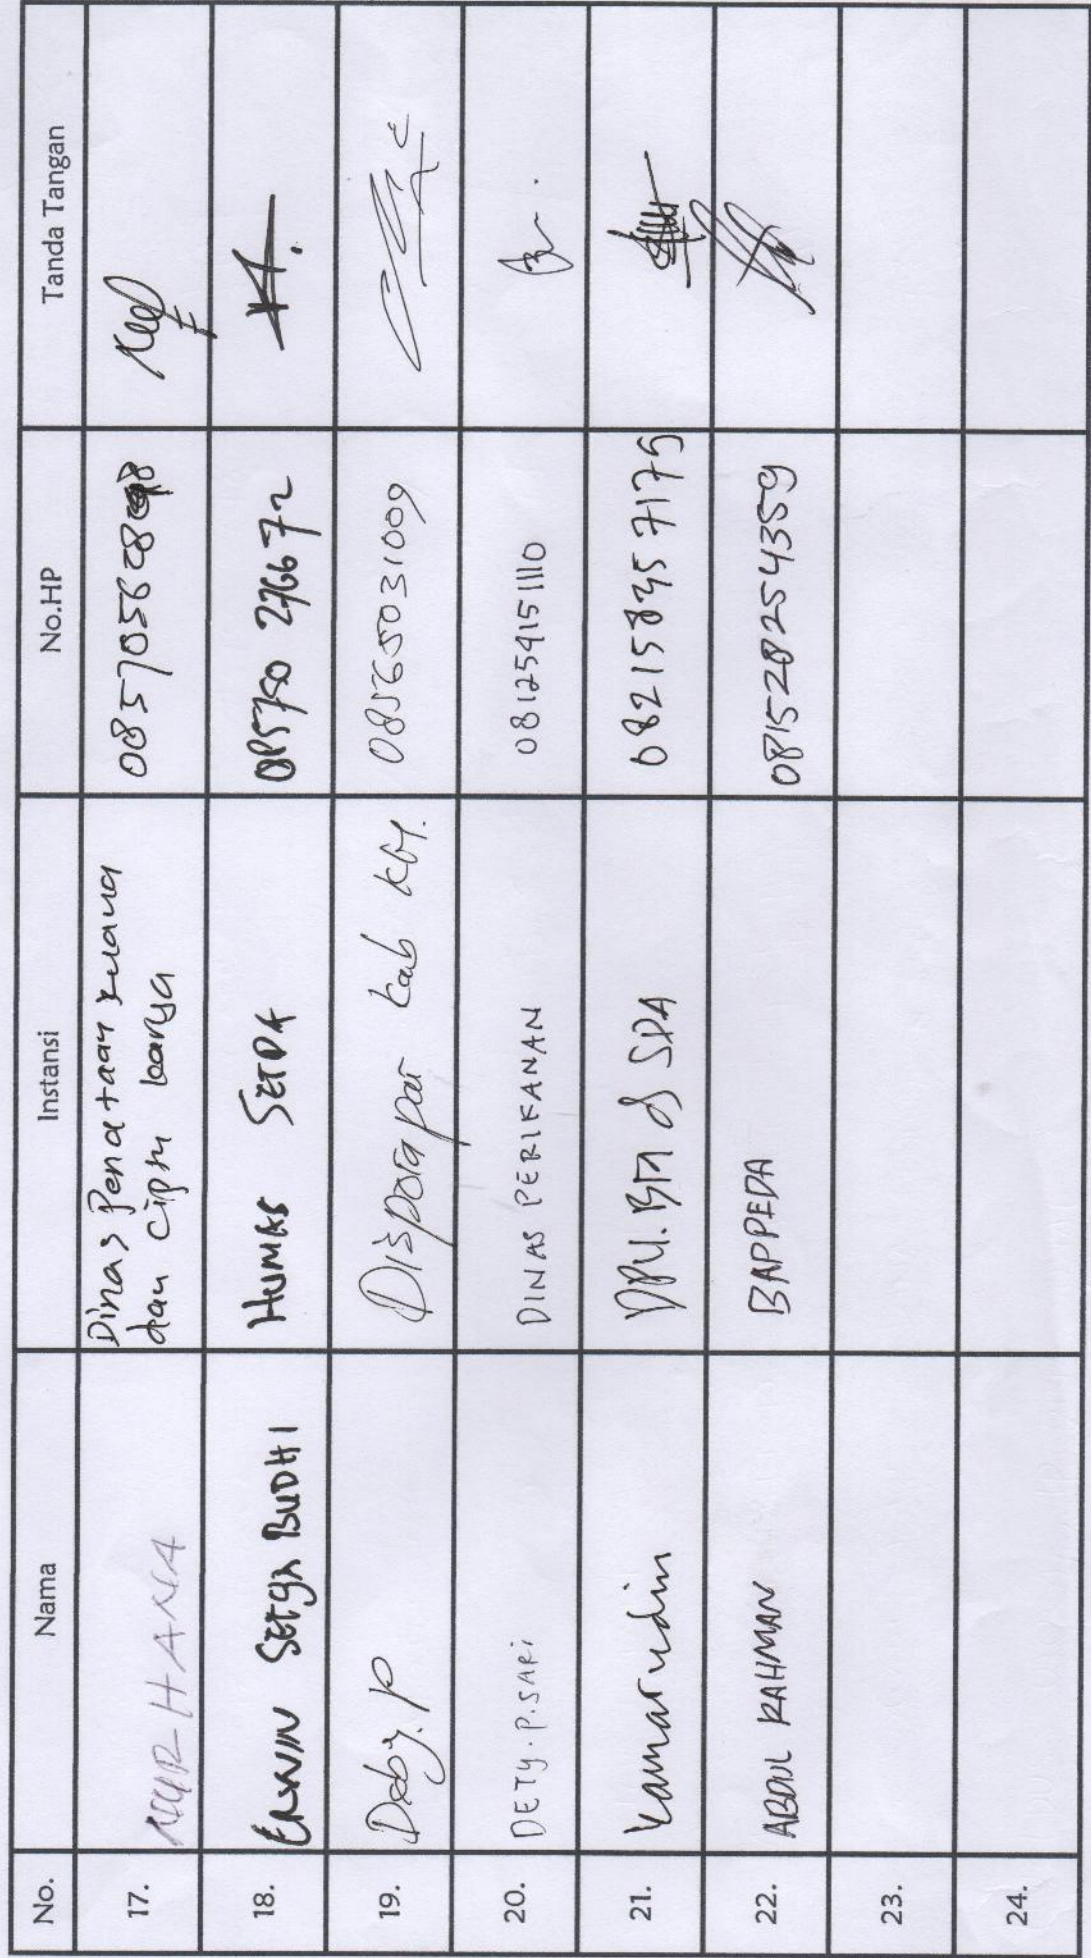 No. Nama Instansi No.HP Tanda Tangan
17. NURHANA Dinas Penataan ruang
dan Cipta karya
18. ERWIN SETYA BUDHI HUMAS SETDA
19. Deby. P Disporapar Kab 085650031009
20. DETY. P. SARI DINAS PERIKANAN 081254151110
21. Kamarudin DPU.BM & SDA 082158357175
22. ABDUL RAHMAN BAPPEDA 081528254359
23.
24.